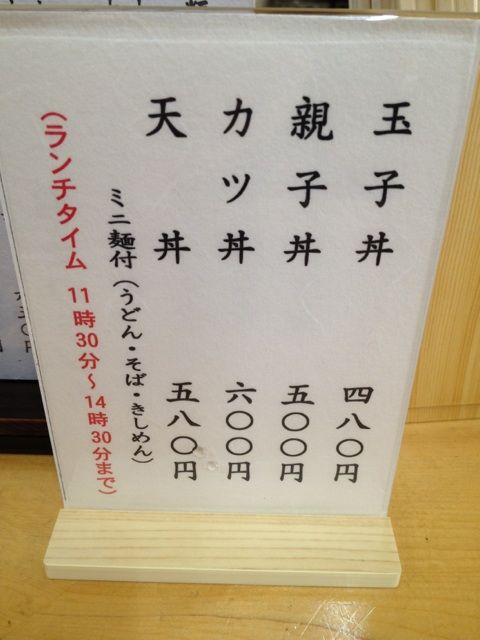 玉子丼 四八〇円
親子丼 五〇〇円
カツ丼 六〇〇円
天丼 五八〇円
ミニ麺付（うどん・そば・きしめん）
（ランチタイム 11時30分～14時30分まで）